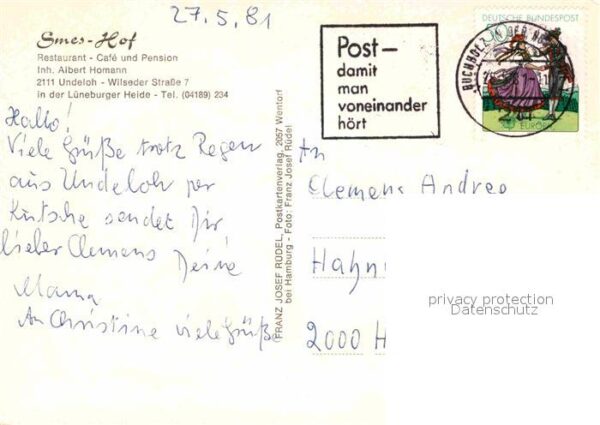 27.5.81
Smes-Hof
Restaurant - Café und Pension
Inh. Albert Homann
2111 Undeloh - Wilseder Straße 7
in der Lüneburger Heide - Tel. (04189) 234
Hallo!
Viele Grüße trotz Regen
aus Undeloh per
Kutsche sendet Dir
lieber Clemens Deine
Mama
An Christine viele Grüße
FRANZ JOSEF RÜDEL, Postkartenverlag, 2057 Wentorf
bei Hamburg - Foto: Franz Josef Rüdel
Post—
damit
man
voneinander
hört
BUCHHOLZ IN DER
DEUTSCHE BUNDESPOST
EUROPA
An
Clemens Andreo
Hahn
2000 H
privacy protection
Datenschutz